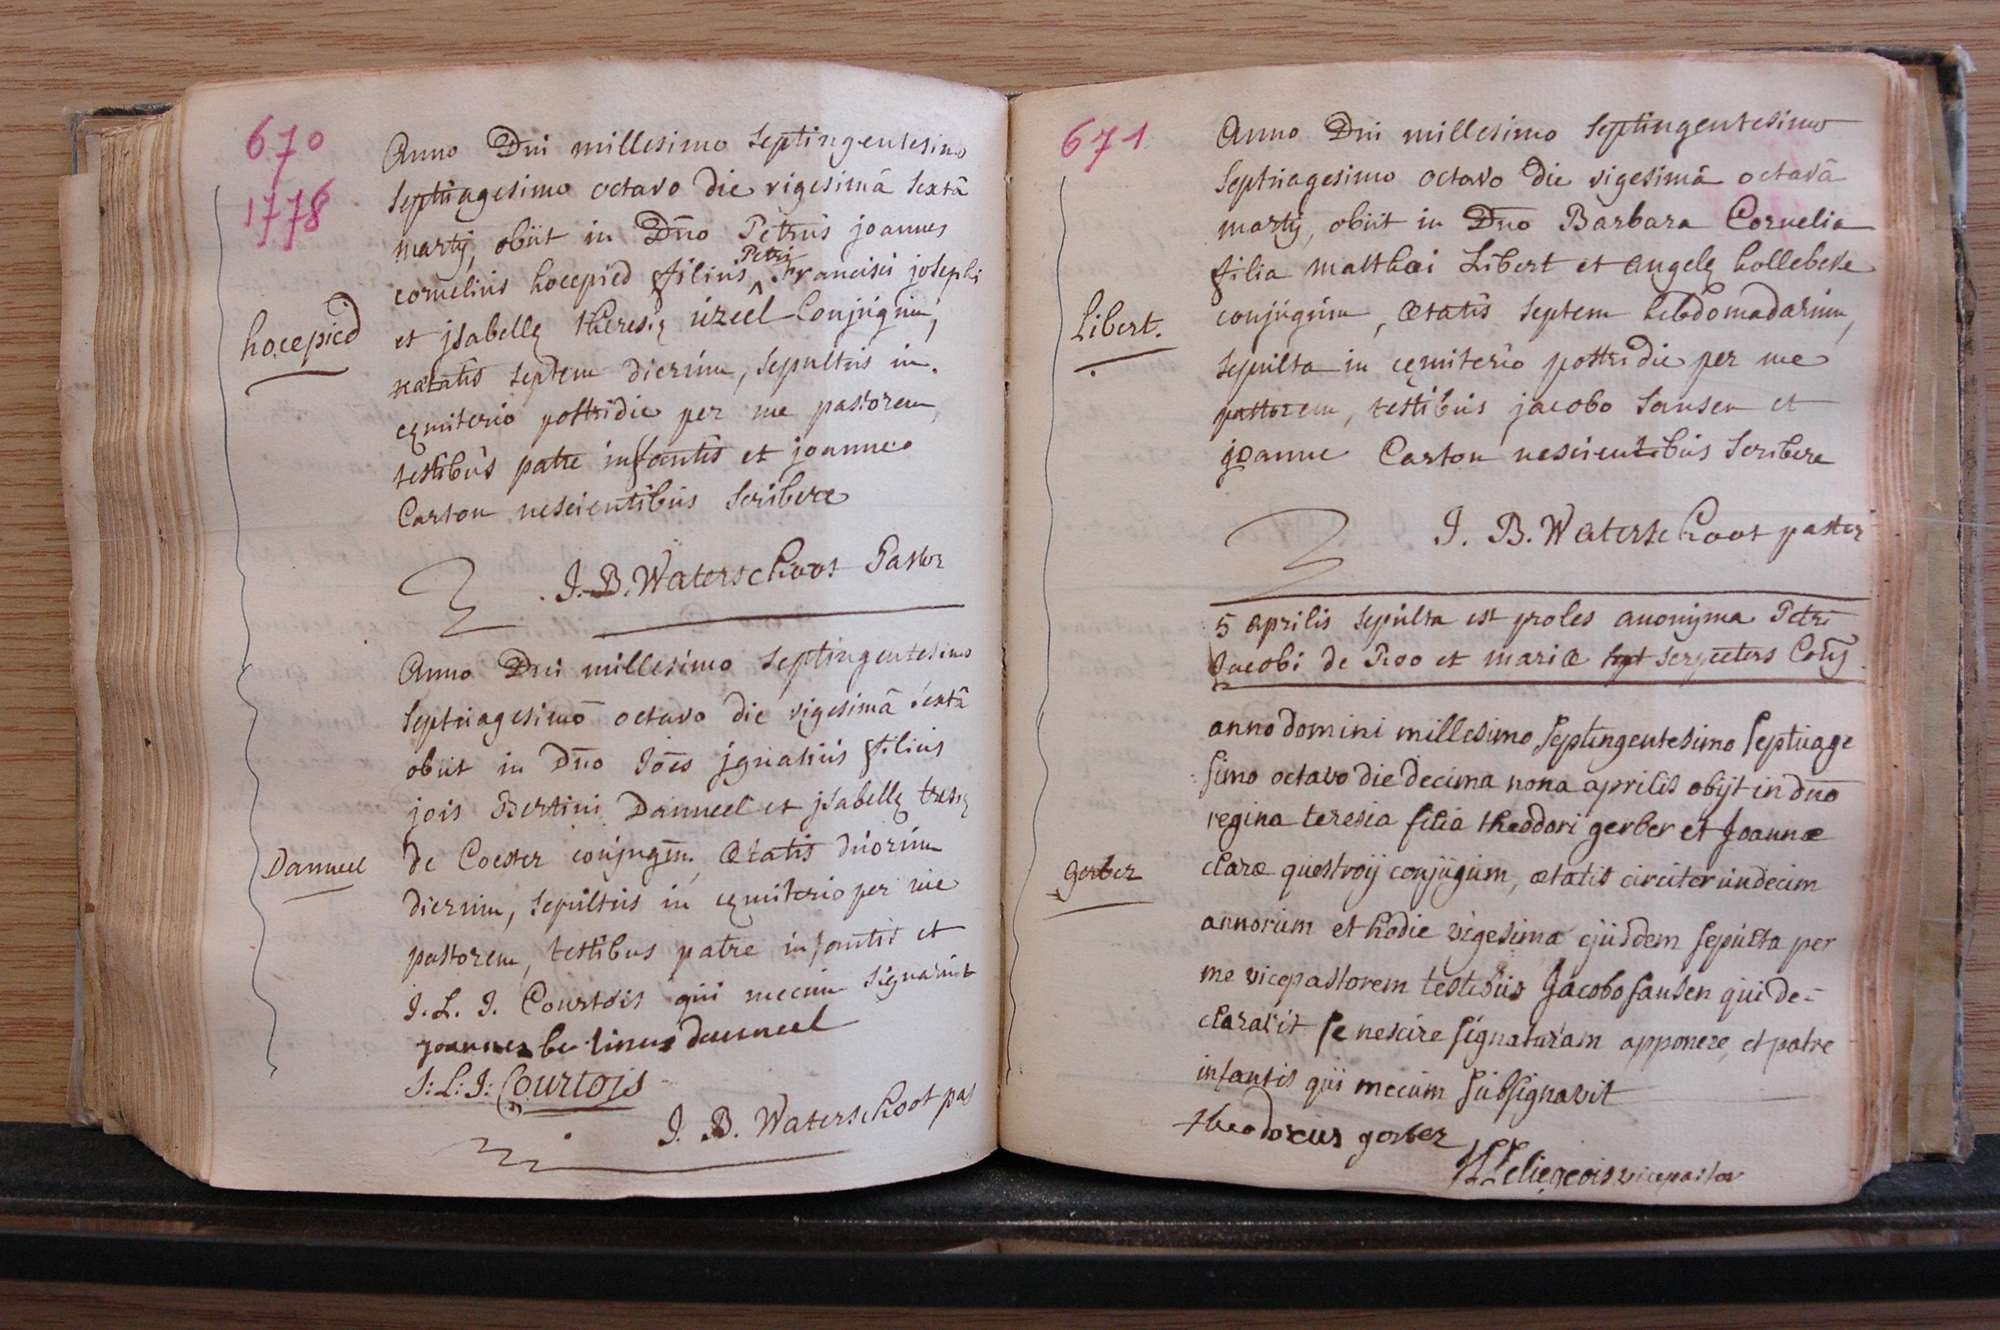 670
1778
Anno Dni millesimo septingentesimo
septuagesimo octavo die vigesimâ sextâ
martij, obiit in Dno Petrus joannes
Petri
cornelius hocepied filius ^ Francisci josephi
et jsabellę theresię uzeel Conjugum,
hocepied
aetatis septem dierum, sepultus in
cęmiterio postridie per me pastorem,
testibus patre infantis et joanne
Carton nescientibus scribere
J. B. Waterschoot Pastor
Anno Dni millesimo septingentesimo
septuagesimo octavo die vigesimâ sextâ
obiit in Dno Joēs jgnatius filius
jois Bertini Danneel et jsabellę tresię
Danneel
de Coester conjugum, ætatis duorum
dierum, sepultus in cęmiterio per me
pastorem, testibus patre infantis et
J. L. J. Courtois qui mecum signarunt
joannes bertinus danneel
J: L: J: Courtois
J. B. Waterschoot pas
671
Anno Dni millesimo septingentesimo
septuagesimo octavo die vigesimâ octavâ
martij, obiit in Dno Barbara Cornelia
filia Matthæi Libert et Angelę hollebeke
Libert.
conjugum, ætatis septem hebdomadarum,
sepulta in cęmiterio postridie per me
pastorem, testibus jacobo Sansen et
joanne Carton nescientibus scribere
J. B. Waterschoot pastor
5 aprilis sepulta est proles anonyma Petri
Jacobi de Roo et mariæ serpeters Conj
anno domini millesimo septingentesimo septuage
simo octavo die decima nona aprilis obijt in dno
regina teresia filia theodori gerber et Joannæ
gerber
claræ questroij conjugum, ætatis circiter undecim
annorum et hodie vigesima ejusdem sepulta per
me vicepastorem testibus Jacobo sansen qui de-
claravit se nescire signaturam apponere et patre
infantis qui mecum subsignavit
theodorus gerber
Leliegeois vicepastor